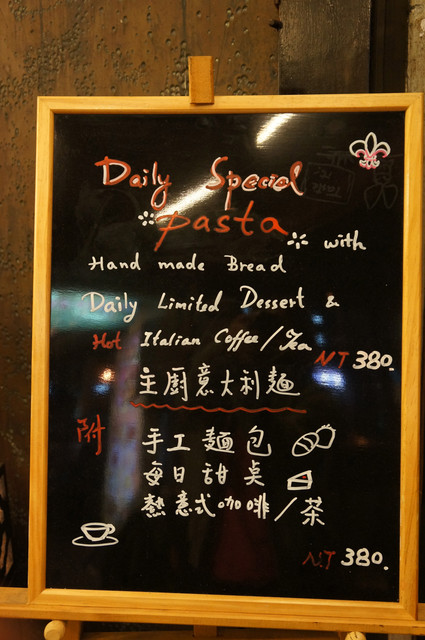 Daily Special
pasta
with
Hand made Bread
Daily Limited Dessert &
Hot Italian Coffee/Tea
NT 380.
主廚意大利麵
附 手工麵包
每日甜桌
熱意式咖啡/茶
NT 380.